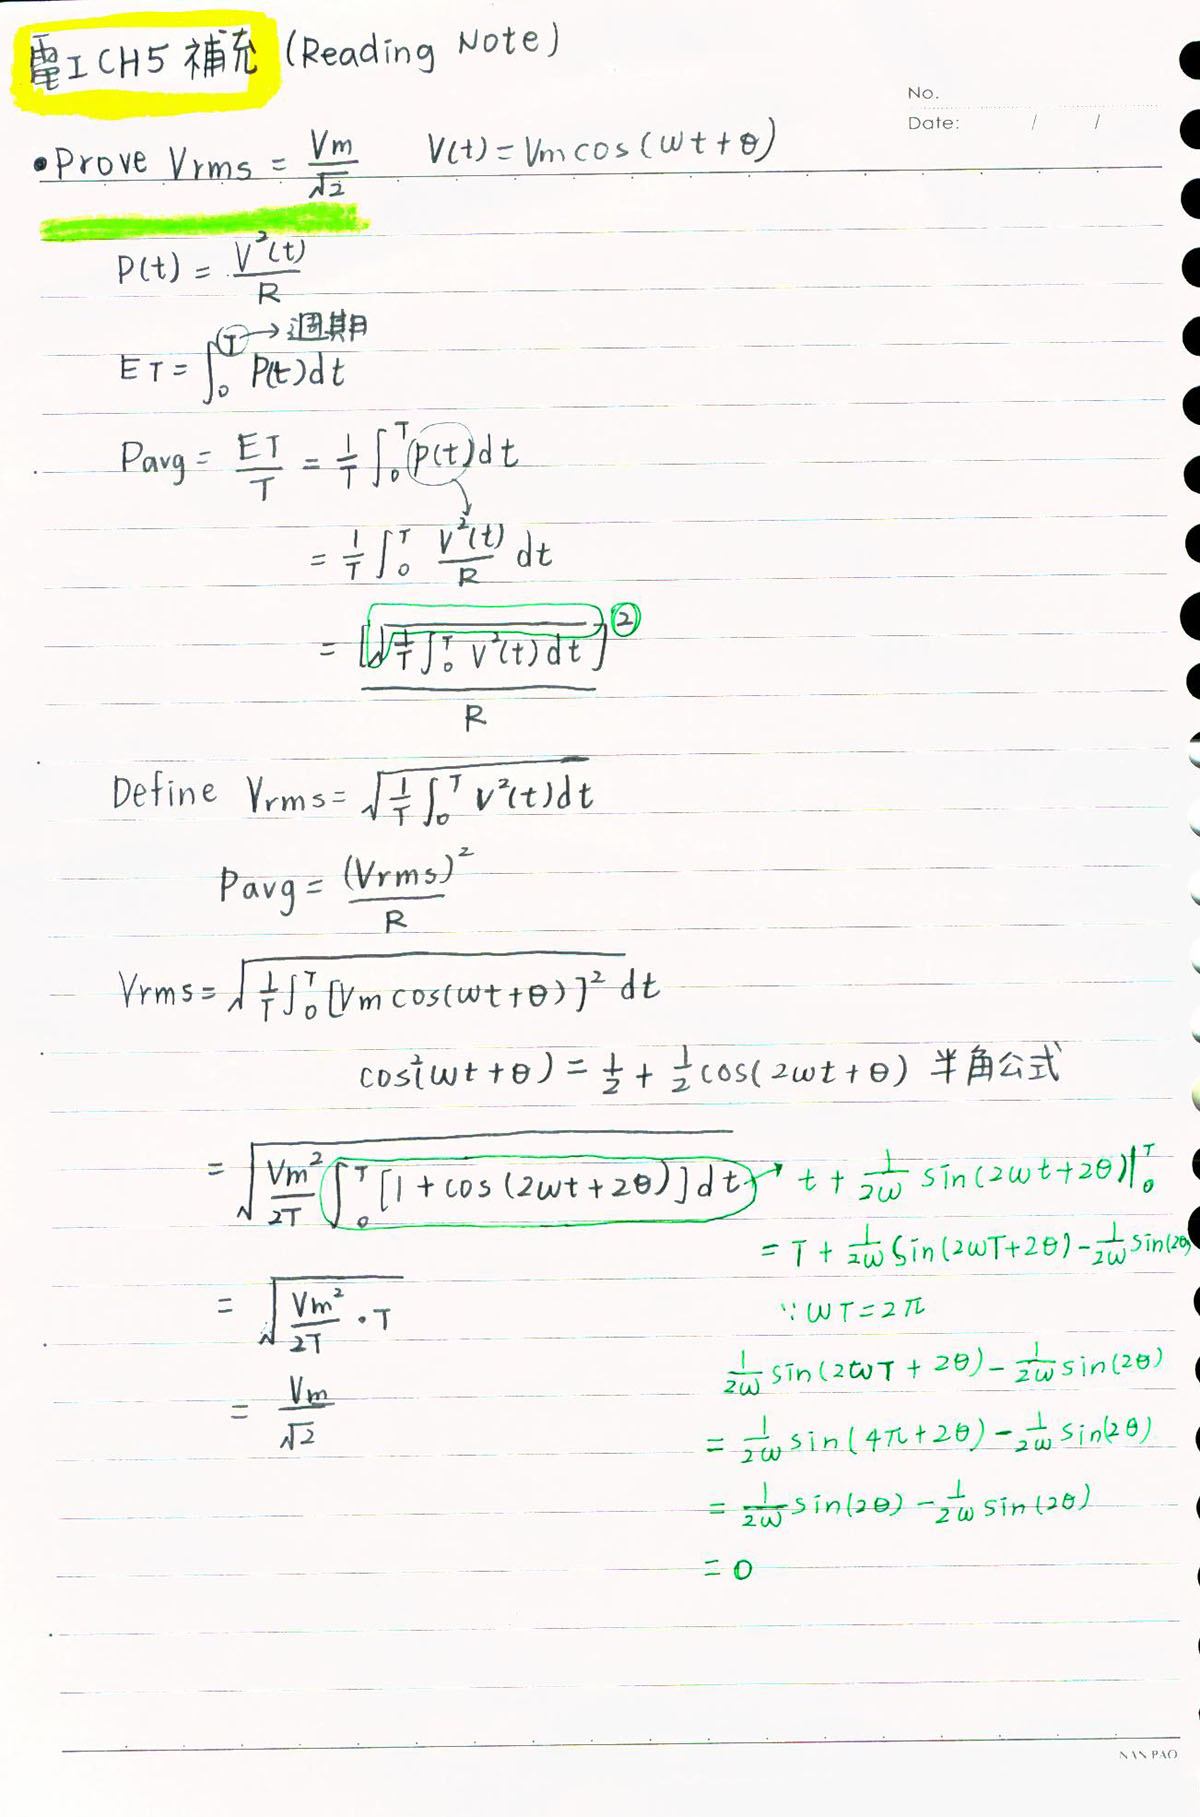 電工CH5 補充 (Reading Note)
No.
Date: / /
•Prove Vrms = Vm/√2 V(t) = Vm cos(ωt+θ)
P(t) = V²(t)/R
ET = ∫₀ᵀ P(t)dt T→週期
Pavg = ET/T = 1/T ∫₀ᵀ P(t)dt
= 1/T ∫₀ᵀ V²(t)/R dt
= [√(1/T ∫₀ᵀ V²(t)dt)]² / R
Define Vrms = √(1/T ∫₀ᵀ V²(t)dt)
Pavg = (Vrms)²/R
Vrms = √(1/T ∫₀ᵀ [Vm cos(ωt+θ)]² dt)
cos²(ωt+θ) = 1/2 + 1/2 cos(2ωt+θ) 半角公式
= √(Vm²/2T ∫₀ᵀ [1+cos(2ωt+2θ)]dt) → t + 1/2ω sin(2ωt+2θ)|₀ᵀ
= T + 1/2ω sin(2ωT+2θ) - 1/2ω sin(2θ)
= √(Vm²/2T · T)
∵ ωT = 2π
1/2ω sin(2ωT + 2θ) - 1/2ω sin(2θ)
= Vm/√2
= 1/2ω sin(4π+2θ) - 1/2ω sin(2θ)
= 1/2ω sin(2θ) - 1/2ω sin(2θ)
= 0
NAN PAO